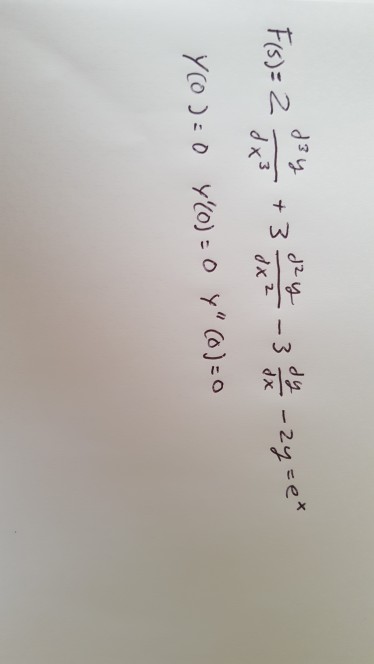 F(s) = 2 d³y/dx³ + 3 d²y/dx² - 3 dy/dx - 2y = eˣ
y(0) = 0 y'(0) = 0 y"(0) = 0